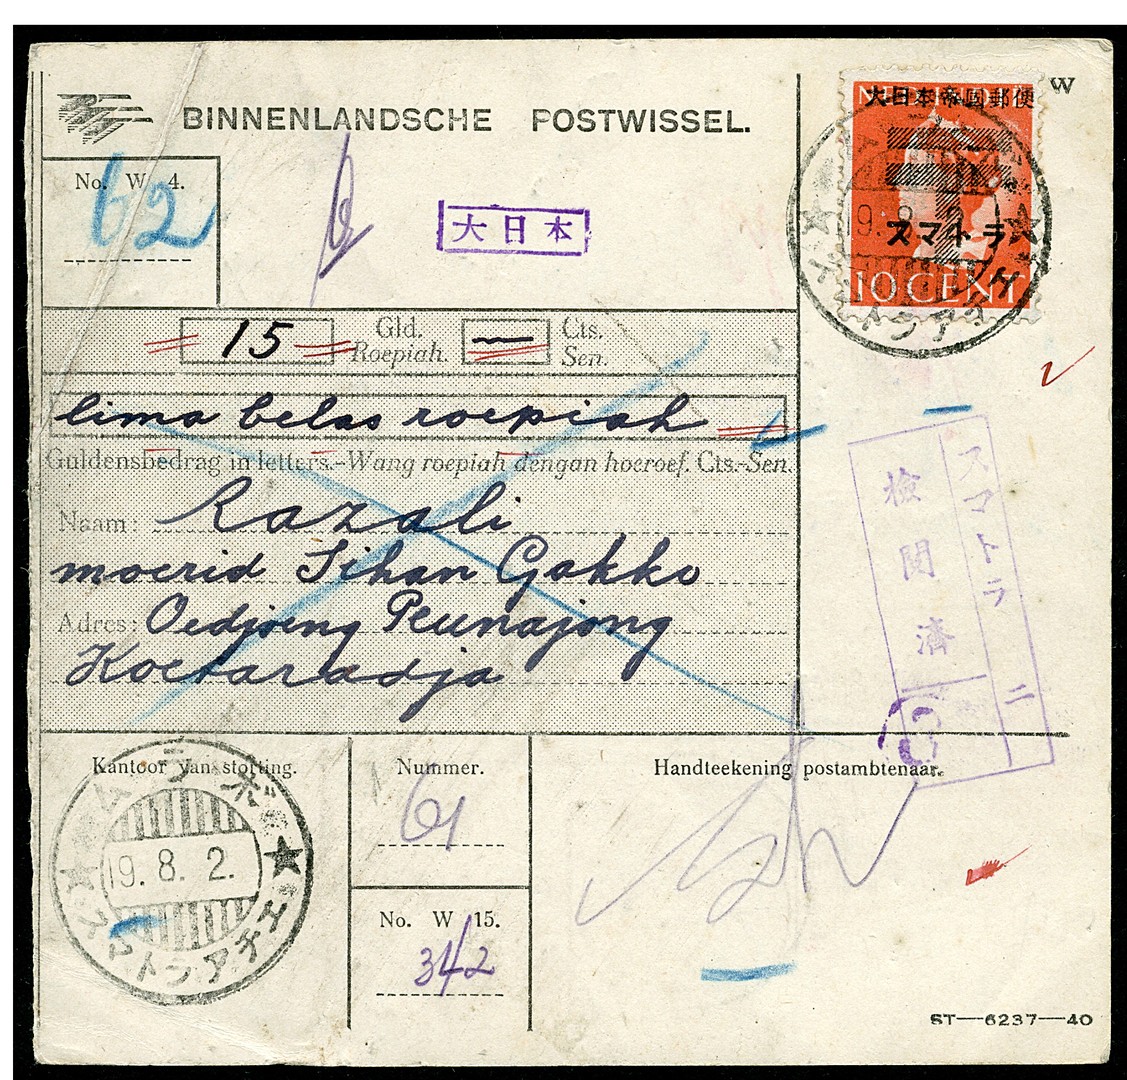 BINNENLANDSCHE POSTWISSEL.
W
大日本帝國郵便
スマトラ
10 CENT
19. 8. 2.
No. W 4.
62
大日本
15
Gld.
Roepiah.
—
Cts.
Sen.
lima belas roepiah
Guldensbedrag in letters.-Wang roepiah dengan hoeroef. Cts.-Sen.
Naam: Razali
moerid Sihan Gakko
Adres: Oedjoeng Peunajong
Koetaradja
スマトラ 二
検閲濟
Kantoor van storting.
19. 8. 2.
スマトラアチエ
Nummer.
61
No. W 15.
342
Handteekening postambtenaar.
ST—6237—40